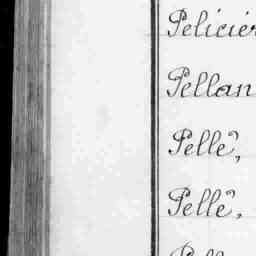 Pelicier
Pellan
Pellé,
Pellé,